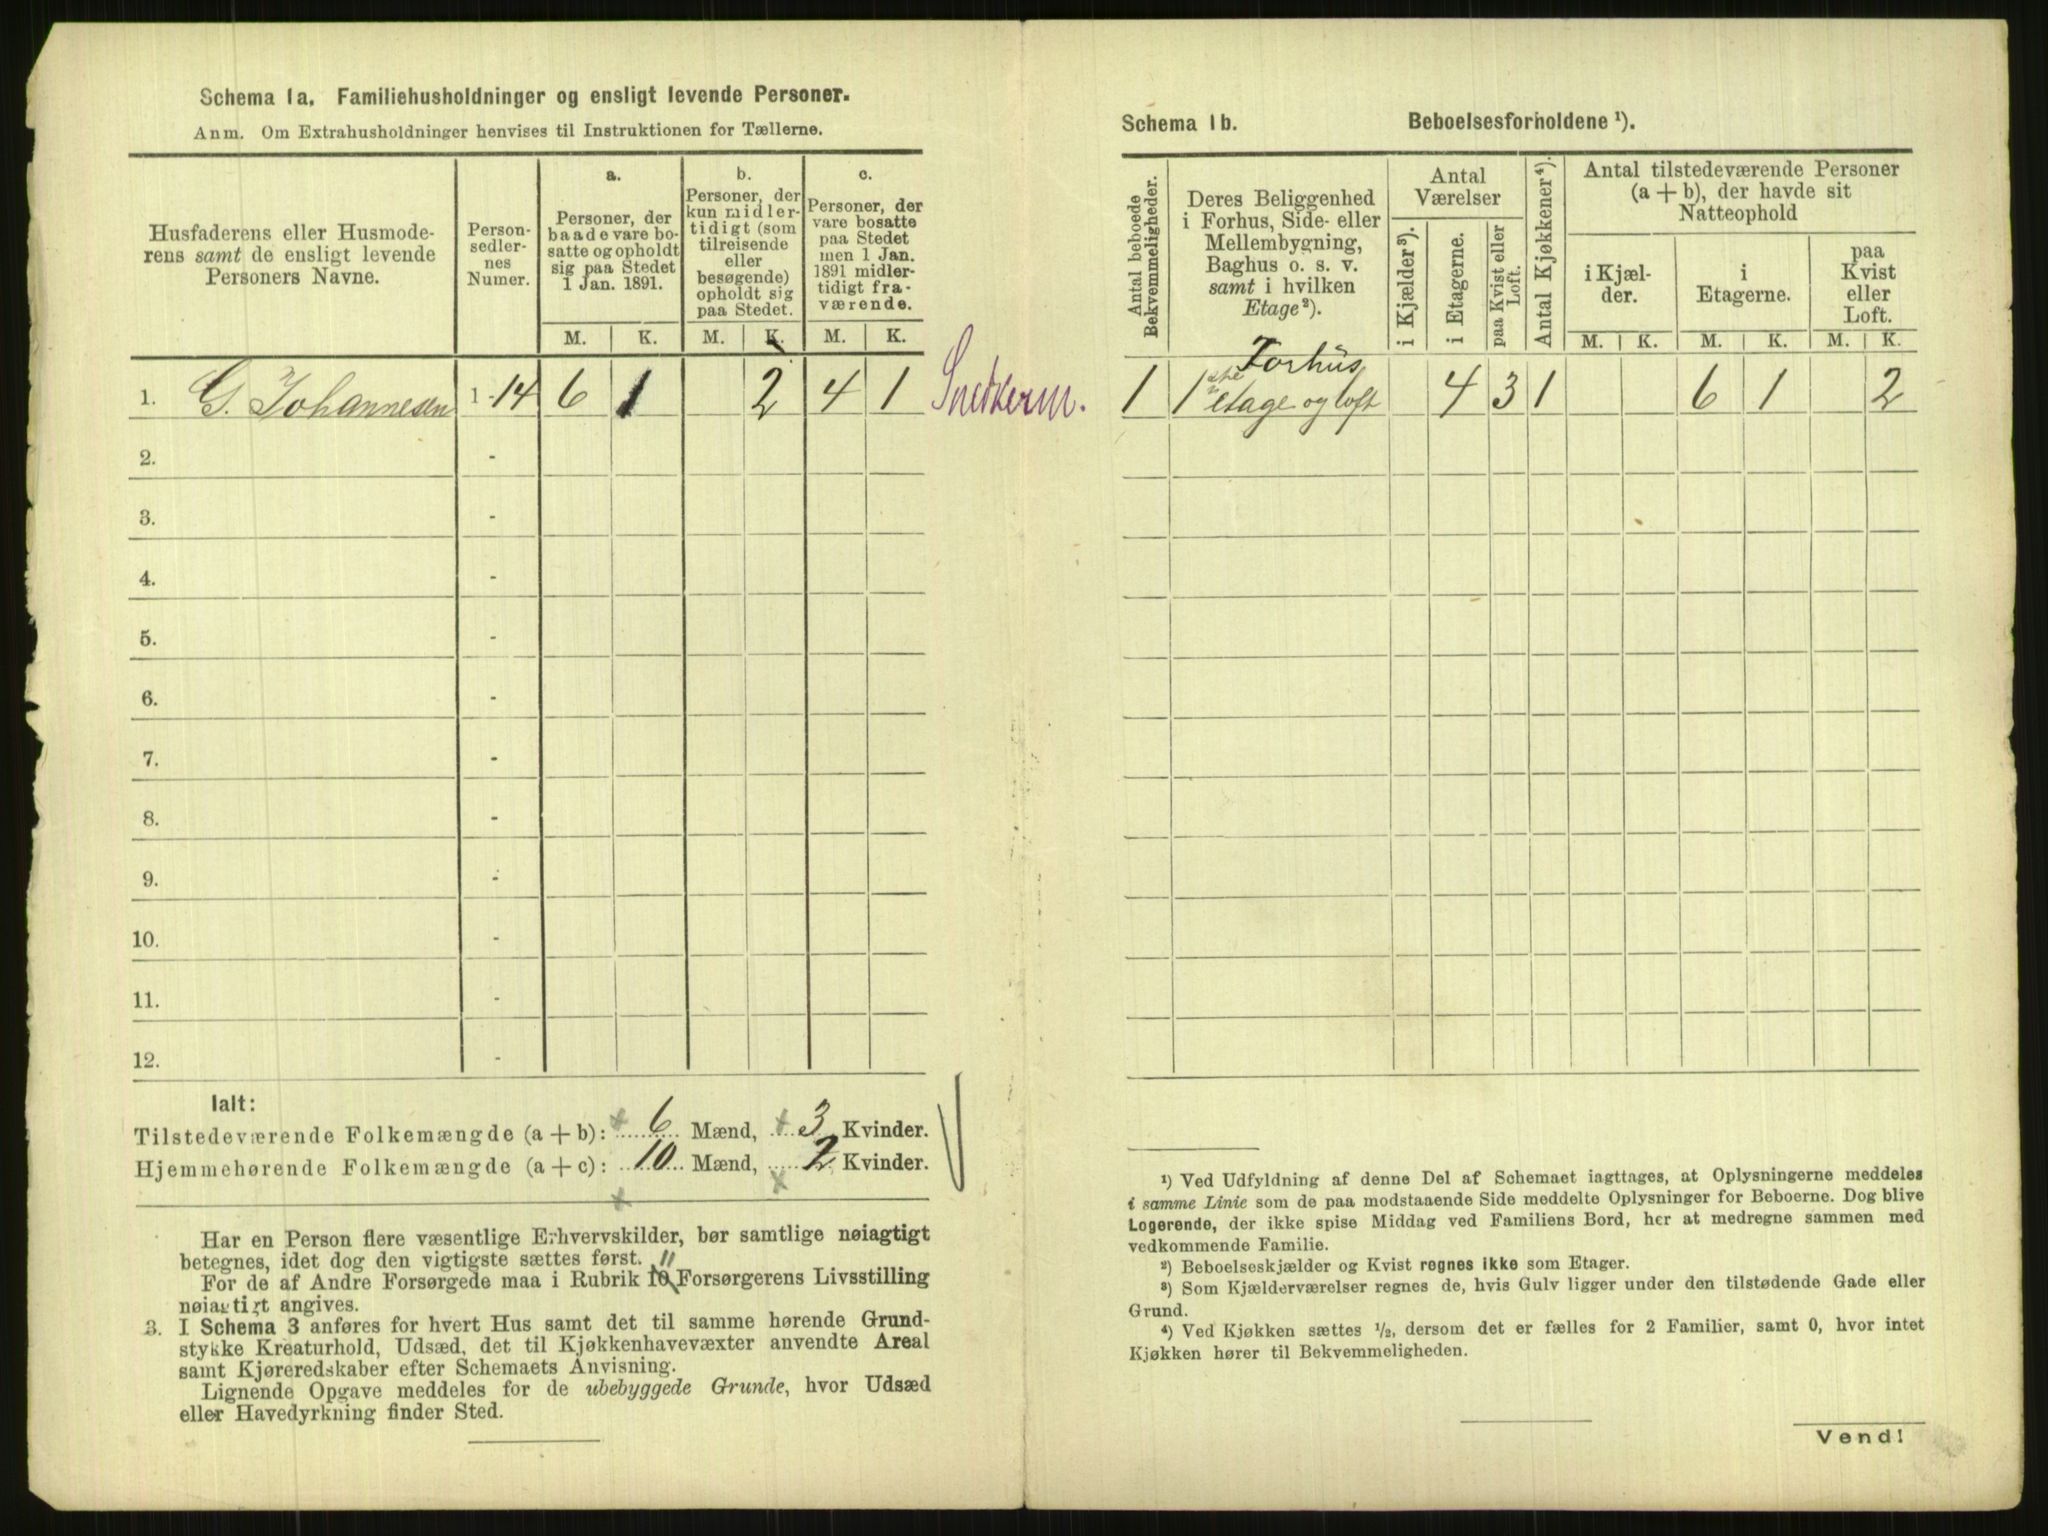 Schema 1a. Familiehusholdninger og ensligt levende Personer.
Anm. Om Extrahusholdninger henvises til Instruktionen for Tællerne.
Husfaderens eller Husmode-
rens samt de ensligt levende
Personers Navne.
Person-
sedler-
nes
Numer.
a.
Personer, der
baade vare bo-
satte og opholdt
sig paa Stedet
1 Jan. 1891.
b.
Personer, der
kun midler-
tidigt (som
tilreisende
eller
besøgende)
opholdt sig
paa Stedet.
c.
Personer, der
vare bosatte
paa Stedet
men 1 Jan.
1891 midler-
tidigt fra-
værende.
M. K. M. K. M. K.
1. G. Johannesen 1 - 14 6 1 2 4 1 Snedkerm.
2. -
3. -
4. -
5. -
6. -
7. -
8. -
9. -
10. -
11. -
12. -
Ialt:
Tilstedeværende Folkemængde (a + b): 6 Mænd, 3 Kvinder.
Hjemmehørende Folkemængde (a + c): 10 Mænd, 2 Kvinder.
Har en Person flere væsentlige Erhvervskilder, bør samtlige nøiagtigt
betegnes, idet dog den vigtigste sættes først.
11
For de af Andre Forsørgede maa i Rubrik 10 Forsørgerens Livsstilling
nøiagtigt angives.
3. I Schema 3 anføres for hvert Hus samt det til samme hørende Grund-
stykke Kreaturhold, Udsæd, det til Kjøkkenhavevæxter anvendte Areal
samt Kjøreredskaber efter Schemaets Anvisning.
Lignende Opgave meddeles for de ubebyggede Grunde, hvor Udsæd
eller Havedyrkning finder Sted.
Schema 1b. Beboelsesforholdene ¹).
Antal beboede
Bekvemmeligheder.
Deres Beliggenhed
i Forhus, Side- eller
Mellembygning,
Baghus o. s. v.
samt i hvilken
Etage²).
Antal
Værelser
i Kjælder³).
i Etagerne.
paa Kvist eller
Loft.
Antal Kjøkkener⁴).
Antal tilstedeværende Personer
(a + b), der havde sit
Natteophold
i Kjæl-
der.
i
Etagerne.
paa
Kvist
eller
Loft.
M. K. M. K. M. K.
Forhus
1 1 etage og loft 4 3 1 6 1 2
¹) Ved Udfyldning af denne Del af Schemaet iagttages, at Oplysningerne meddeles
i samme Linie som de paa modstaaende Side meddelte Oplysninger for Beboerne. Dog blive
Logerende, der ikke spise Middag ved Familiens Bord, her at medregne sammen med
vedkommende Familie.
²) Beboelseskjælder og Kvist regnes ikke som Etager.
³) Som Kjælderværelser regnes de, hvis Gulv ligger under den tilstødende Gade eller
Grund.
⁴) Ved Kjøkken sættes ½, dersom det er fælles for 2 Familier, samt 0, hvor intet
Kjøkken hører til Bekvemmeligheden.
Vend!